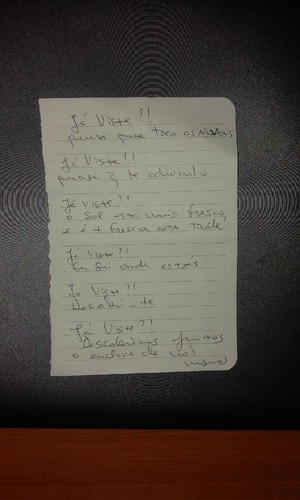 Já Viste?!
quase que toco as NUVENS
Já Viste?!
quase q̃ te adivinho
Já Viste?!
o sol está mais fresco,
e é + fresca esta tarde
Já Viste?!
Eu sei onde estás
Já Viste?!
Descobri-te
Já Viste?!
Descobrimos juntos
o enclave de nós